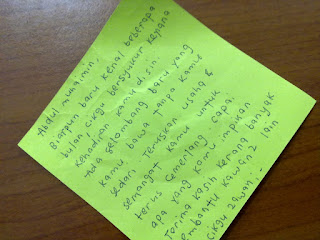 Abdul muhaimin.
Biarpun baru kenal beberapa
bulan, cikgu bersyukur kerana
kehadiran kamu disini.
Ada gelombang baru yang
kamu bawa tanpa kamu
sedari. Teruskan usaha &
semangat kamu untuk
terus cemerlang capai
apa yang kamu impikan
Terima kasih kerana banyak
membantu kawan2 lain
cikgu zawani.